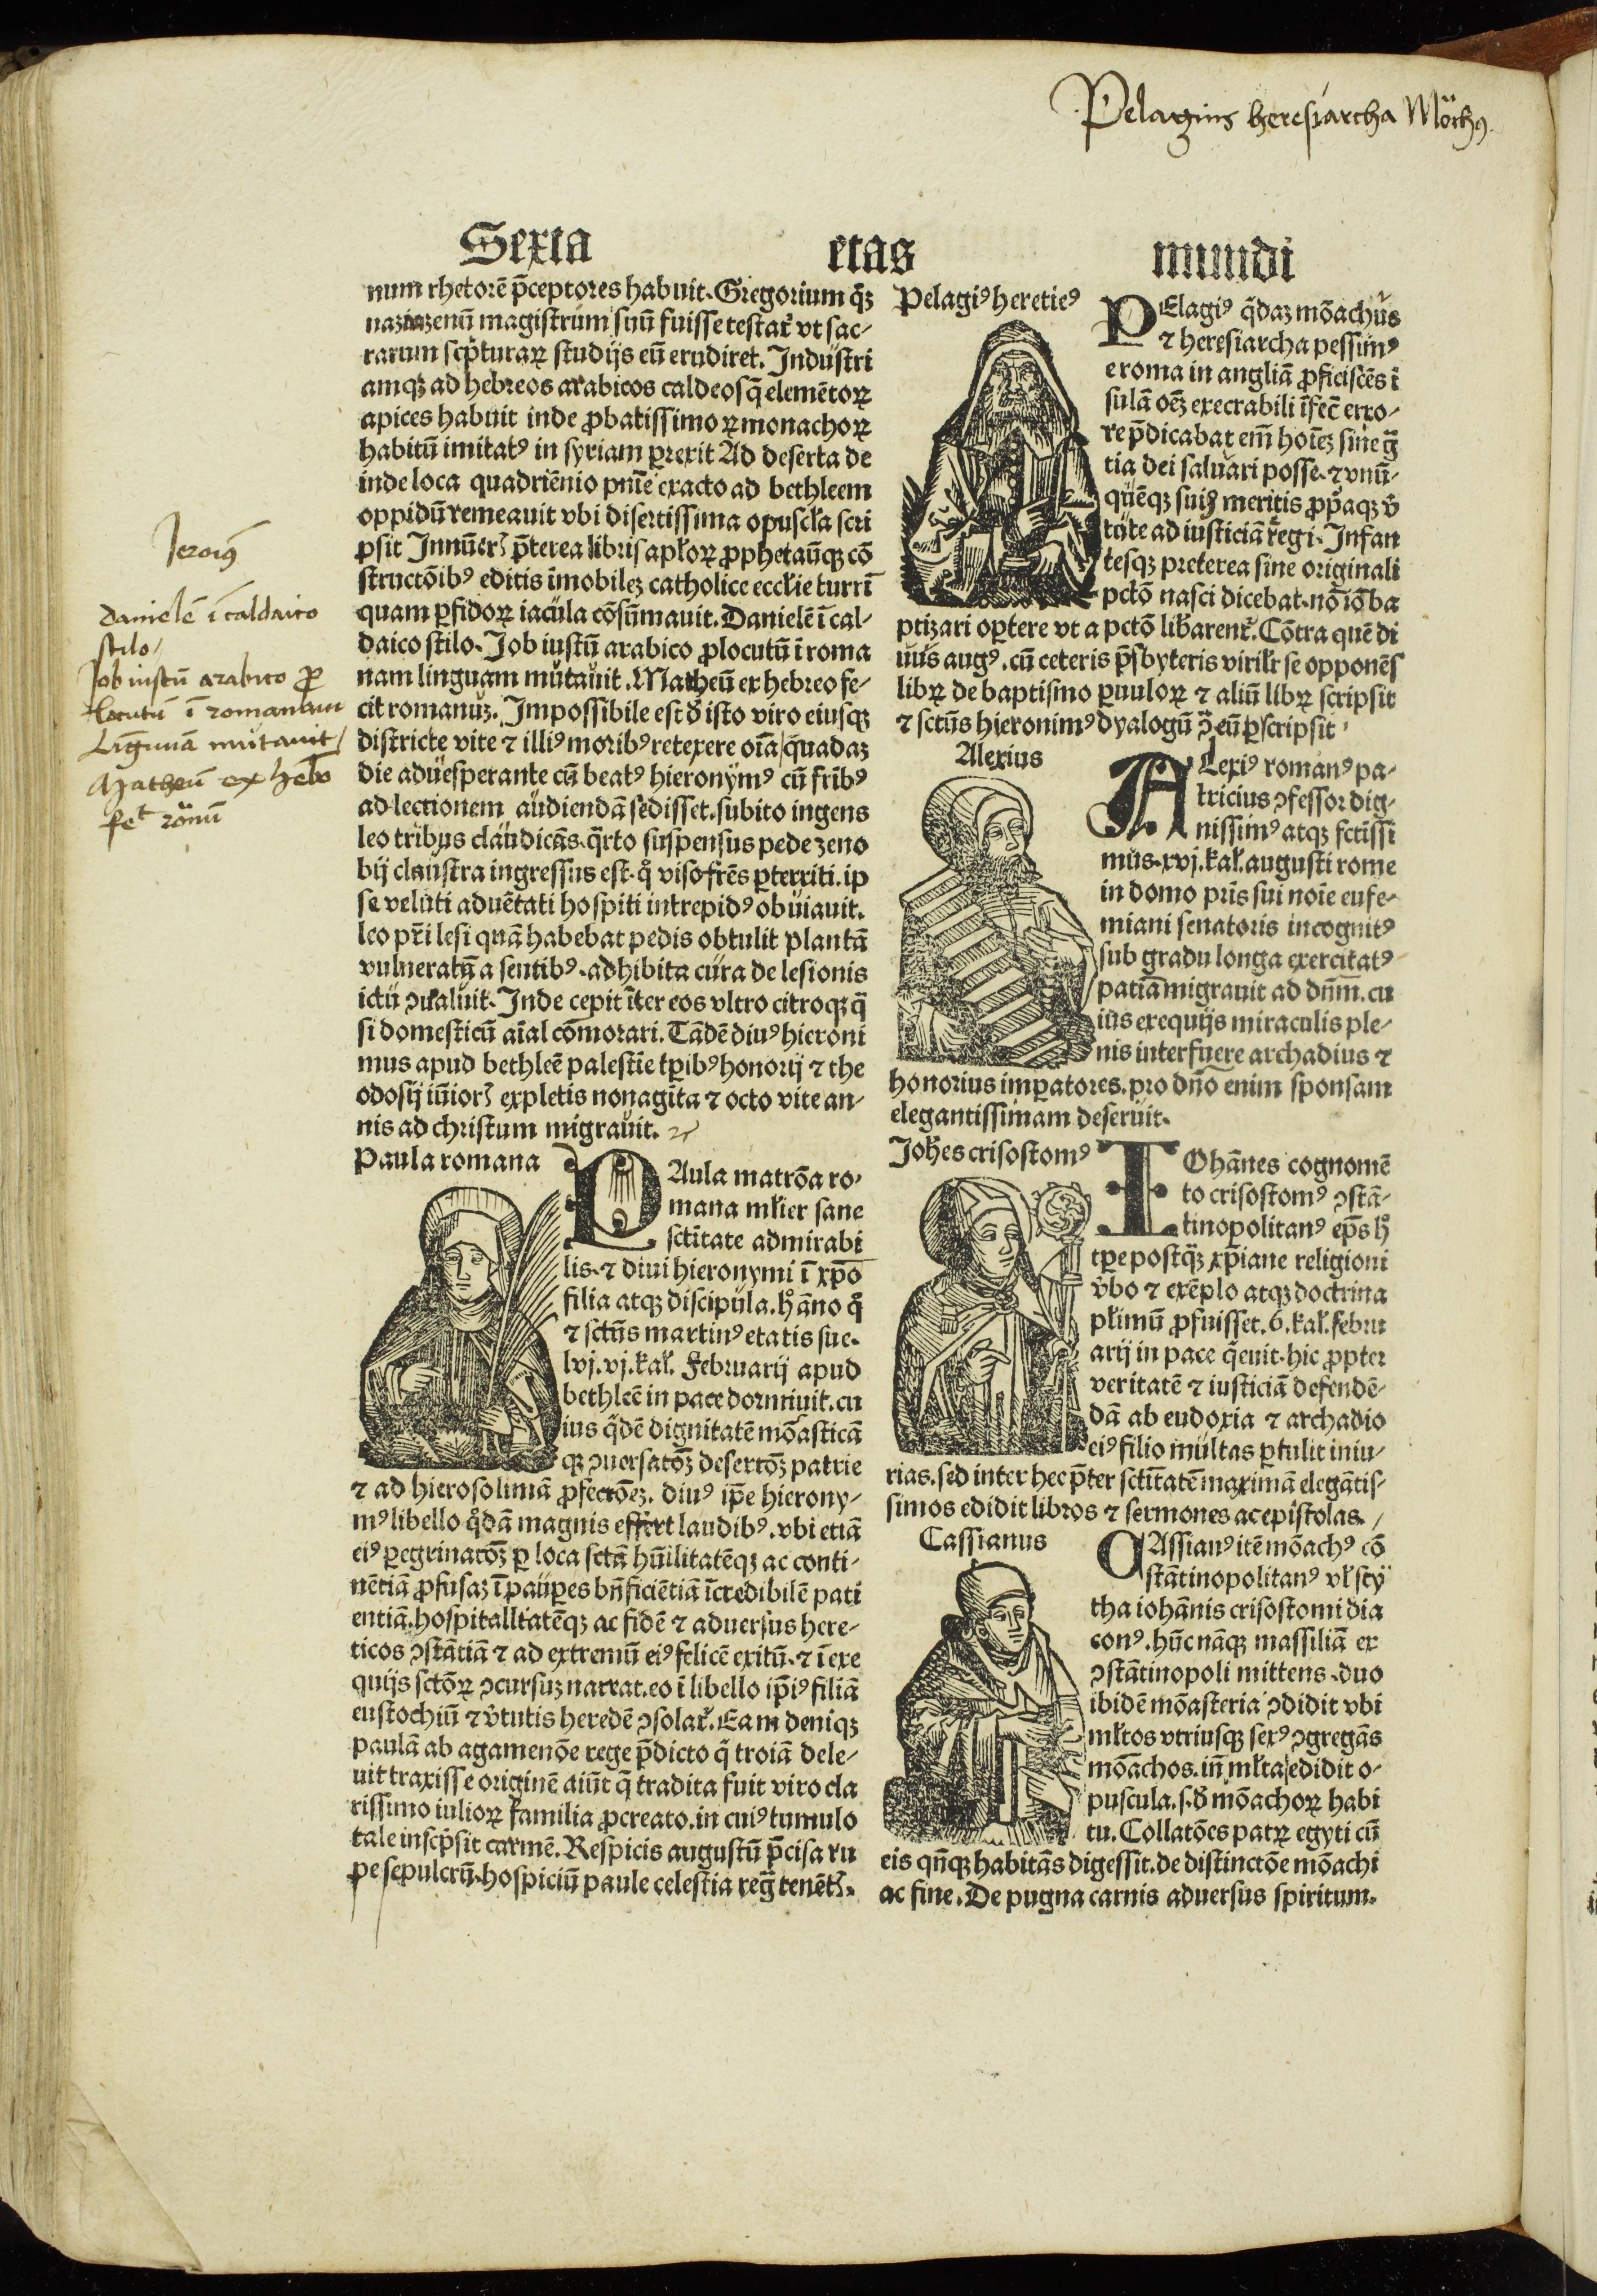 Pelagius heresiarcha Mōchꝰ
Sexta etas mundi
num rhetorē p̄ceptores habuit. Gregorium q̄ꝫ
nazianzenū magistrum suū fuisse testat᷑ vt sac-
rarum scp̄turaꝝ studijs eū erudiret. Industri
amqꝫ ad hebreos arabicos caldeosq̄ elemētoꝝ
apices habuit inde ꝓbatissimoꝝ monachoꝝ
habitū imitatꝰ in syriam ꝑrexit Ad deserta de
inde loca quadriēnio pn̄ie exacto ad bethleem
oppidū remeauit vbi disertissima opuscła scri
psit Innūer᷑ p̄terea libris apłoꝝ ꝓphetaūqꝫ cō
structōibꝰ editis īmobilē catholice eccłie turrī
quam ꝑfidoꝝ iacula cōsūmauit. Danielē ī cal-
daico stilo. Job iustū arabico ꝓlocutū ī roma
nam linguam mutauit. Matheū ex hebreo fe-
cit romanuꝫ. Impossibile est ꝺ̄ isto viro eiusqꝫ
districte vite ⁊ illiꝰ moribꝰ retexere oīa quadaꝫ
die aduesperante cū beatꝰ hieronymꝰ cū fr̄ibꝰ
ad lectionem audiendā sedisset. subito ingens
leo tribus claudicās. q̄rto suspensus pede zeno
bij claustra ingressus est. q̊ viso fr̄es ꝑterriti. ip
se veluti aduētati hospiti intrepidꝰ obuiauit.
leo pr̄i lesi quā habebat pedis obtulit plantā
vulneratā a sentibꝰ. adhibita cura de lesionis
ictu ꝯualuit. Inde cepit īter eos vltro citroqꝫ q̄
si domesticū aīal cōmorari. Tādē diuꝰ hieroni
mus apud bethleē palestīe tꝑibꝰ honorij ⁊ the
odosij iūior᷑ expletis nonagīta ⁊ octo vite an-
nis ad christum migrauit.
Paula romana
PAula matrōa ro-
mana młier sane
sctītate admirabi
lis. ⁊ diui hieronymi ī xp̄o
filia atqꝫ discipula. h̊ āno q̊
⁊ sctūs martinꝰ etatis sue.
lvj. vj. kał. Februarij apud
bethleē in pace dormiuit. cu
ius q̄dē dignitatē mōasticā
qꝫ ꝯuersatōꝫ desertōꝫ patrie
⁊ ad hierosolimā ꝓfectōeꝫ. diuꝰ ip̄e hierony-
mꝰ libello q̄dā magnis effert laudibꝰ. vbi etiā
eiꝰ ꝑegrinatōꝫ ꝑ loca sctā hūilitatēqꝫ ac conti-
nētiā ꝓfusaꝫ ī pauꝑes bn̄ficiētiā īcredibilē pati
entiā. hospitalltatēqꝫ ac fidē ⁊ aduersus here-
ticos ꝯstātiā ⁊ ad extremū eiꝰ felicē exitū. ⁊ ī exe
quijs sctōꝝ ꝯcursuꝫ narrat. eo ī libello ip̄iꝰ filiā
eustochiū ⁊ v̄tutis heredē ꝯsolat᷑. Eam deniqꝫ
paulā ab agamenōe rege p̄dicto q̄ troiā dele-
uit traxisse originē aiūt q̄ tradita fuit viro cla
rissimo iulioꝝ familia ꝓcreato. in cuiꝰ tumulo
tale inscp̄sit carmē. Respicis augustū p̄cisa ru
pe sepulcrū. hospiciū paule celestia reḡ tenēt᷑.
Pelagiꝰ hereticꝰ
PElagiꝰ q̄daꝫ mōachus
⁊ heresiarcha pessimꝰ
e roma in angliā ꝓficiscēs ī
sulā oēꝫ execrabili īfec̄ erro-
re p̄dicabat em̄ hoīeꝫ sine ḡ
tia dei saluari posse. ⁊ vnū-
quēqꝫ suis meritis ꝓp̄aqꝫ v̄
tute ad iusticiā regi. Infan
tesqꝫ preterea sine originali
pctō nasci dicebat. nō iō ba
ptizari oꝑtere vt a pctō liƀarent᷑. Cōtra quē di
uus augꝰ. cū ceteris p̄sbyteris virilr̄ se opponēs
libꝝ de baptismo ꝑuuloꝝ ⁊ aliū libꝝ scripsit
⁊ sctūs hieronimꝰ dyalogū ꝯ̄ eū ꝑscripsit.
Alexius
ALexiꝰ romanꝰ pa-
tricius ꝯfessor dig-
nissimꝰ atqꝫ sctissi
mus. xvj. kał. augusti rome
in domo pr̄is sui noīe eufe-
miani senatoris incognitꝰ
sub gradu longa exercitatꝰ
patīa migrauit ad dn̄m. cu
ius exequijs miraculis ple-
nis interfuere archadius ⁊
honorius imꝑatores. pro dn̄o enim sponsam
elegantissimam deseruit.
Joħes crisostomꝰ
IOhānes cognomē
to crisostomꝰ ꝯstā-
tinopolitanꝰ ep̄s h̊
tꝑe postq̄ꝫ xp̄iane religioni
v̄bo ⁊ exēplo atqꝫ doctrina
płimū ꝓfuisset. 6. kał. febru
arij in pace q̄euit. hic ꝓpter
veritatē ⁊ iusticiā defendē-
dā ab eudoxia ⁊ archadio
eiꝰ filio multas ꝑtulit iniu-
rias. sed inter hec p̄ter sctītatē maximā elegātis-
simos edidit libros ⁊ sermones ac epistolas.
Cassianus
CAssianꝰ itē mōachꝰ cō
stātinopolitanꝰ vł scy
tha iohānis crisostomi dia
conꝰ. hūc nāqꝫ massiliā ex
ꝯstātinopoli mittens. duo
ibidē mōasteria ꝯdidit vbi
młtos vtriusqꝫ sexꝰ ꝯgregās
mōachos. in̄ młta edidit o-
puscula. s. ꝺ̄ mōachoꝝ habi
tu. Collatōes patꝝ egyti cū
eis qn̄qꝫ habitās digessit. de distinctōe mōachi
ac fine. De pugna carnis aduersus spiritum.
Danielē ī caldaico
stilo
Job iustū arabico ꝓ
locutū ī romanam
Linguā mutauit
Matheū ex hebͦ
feᵗ roānū